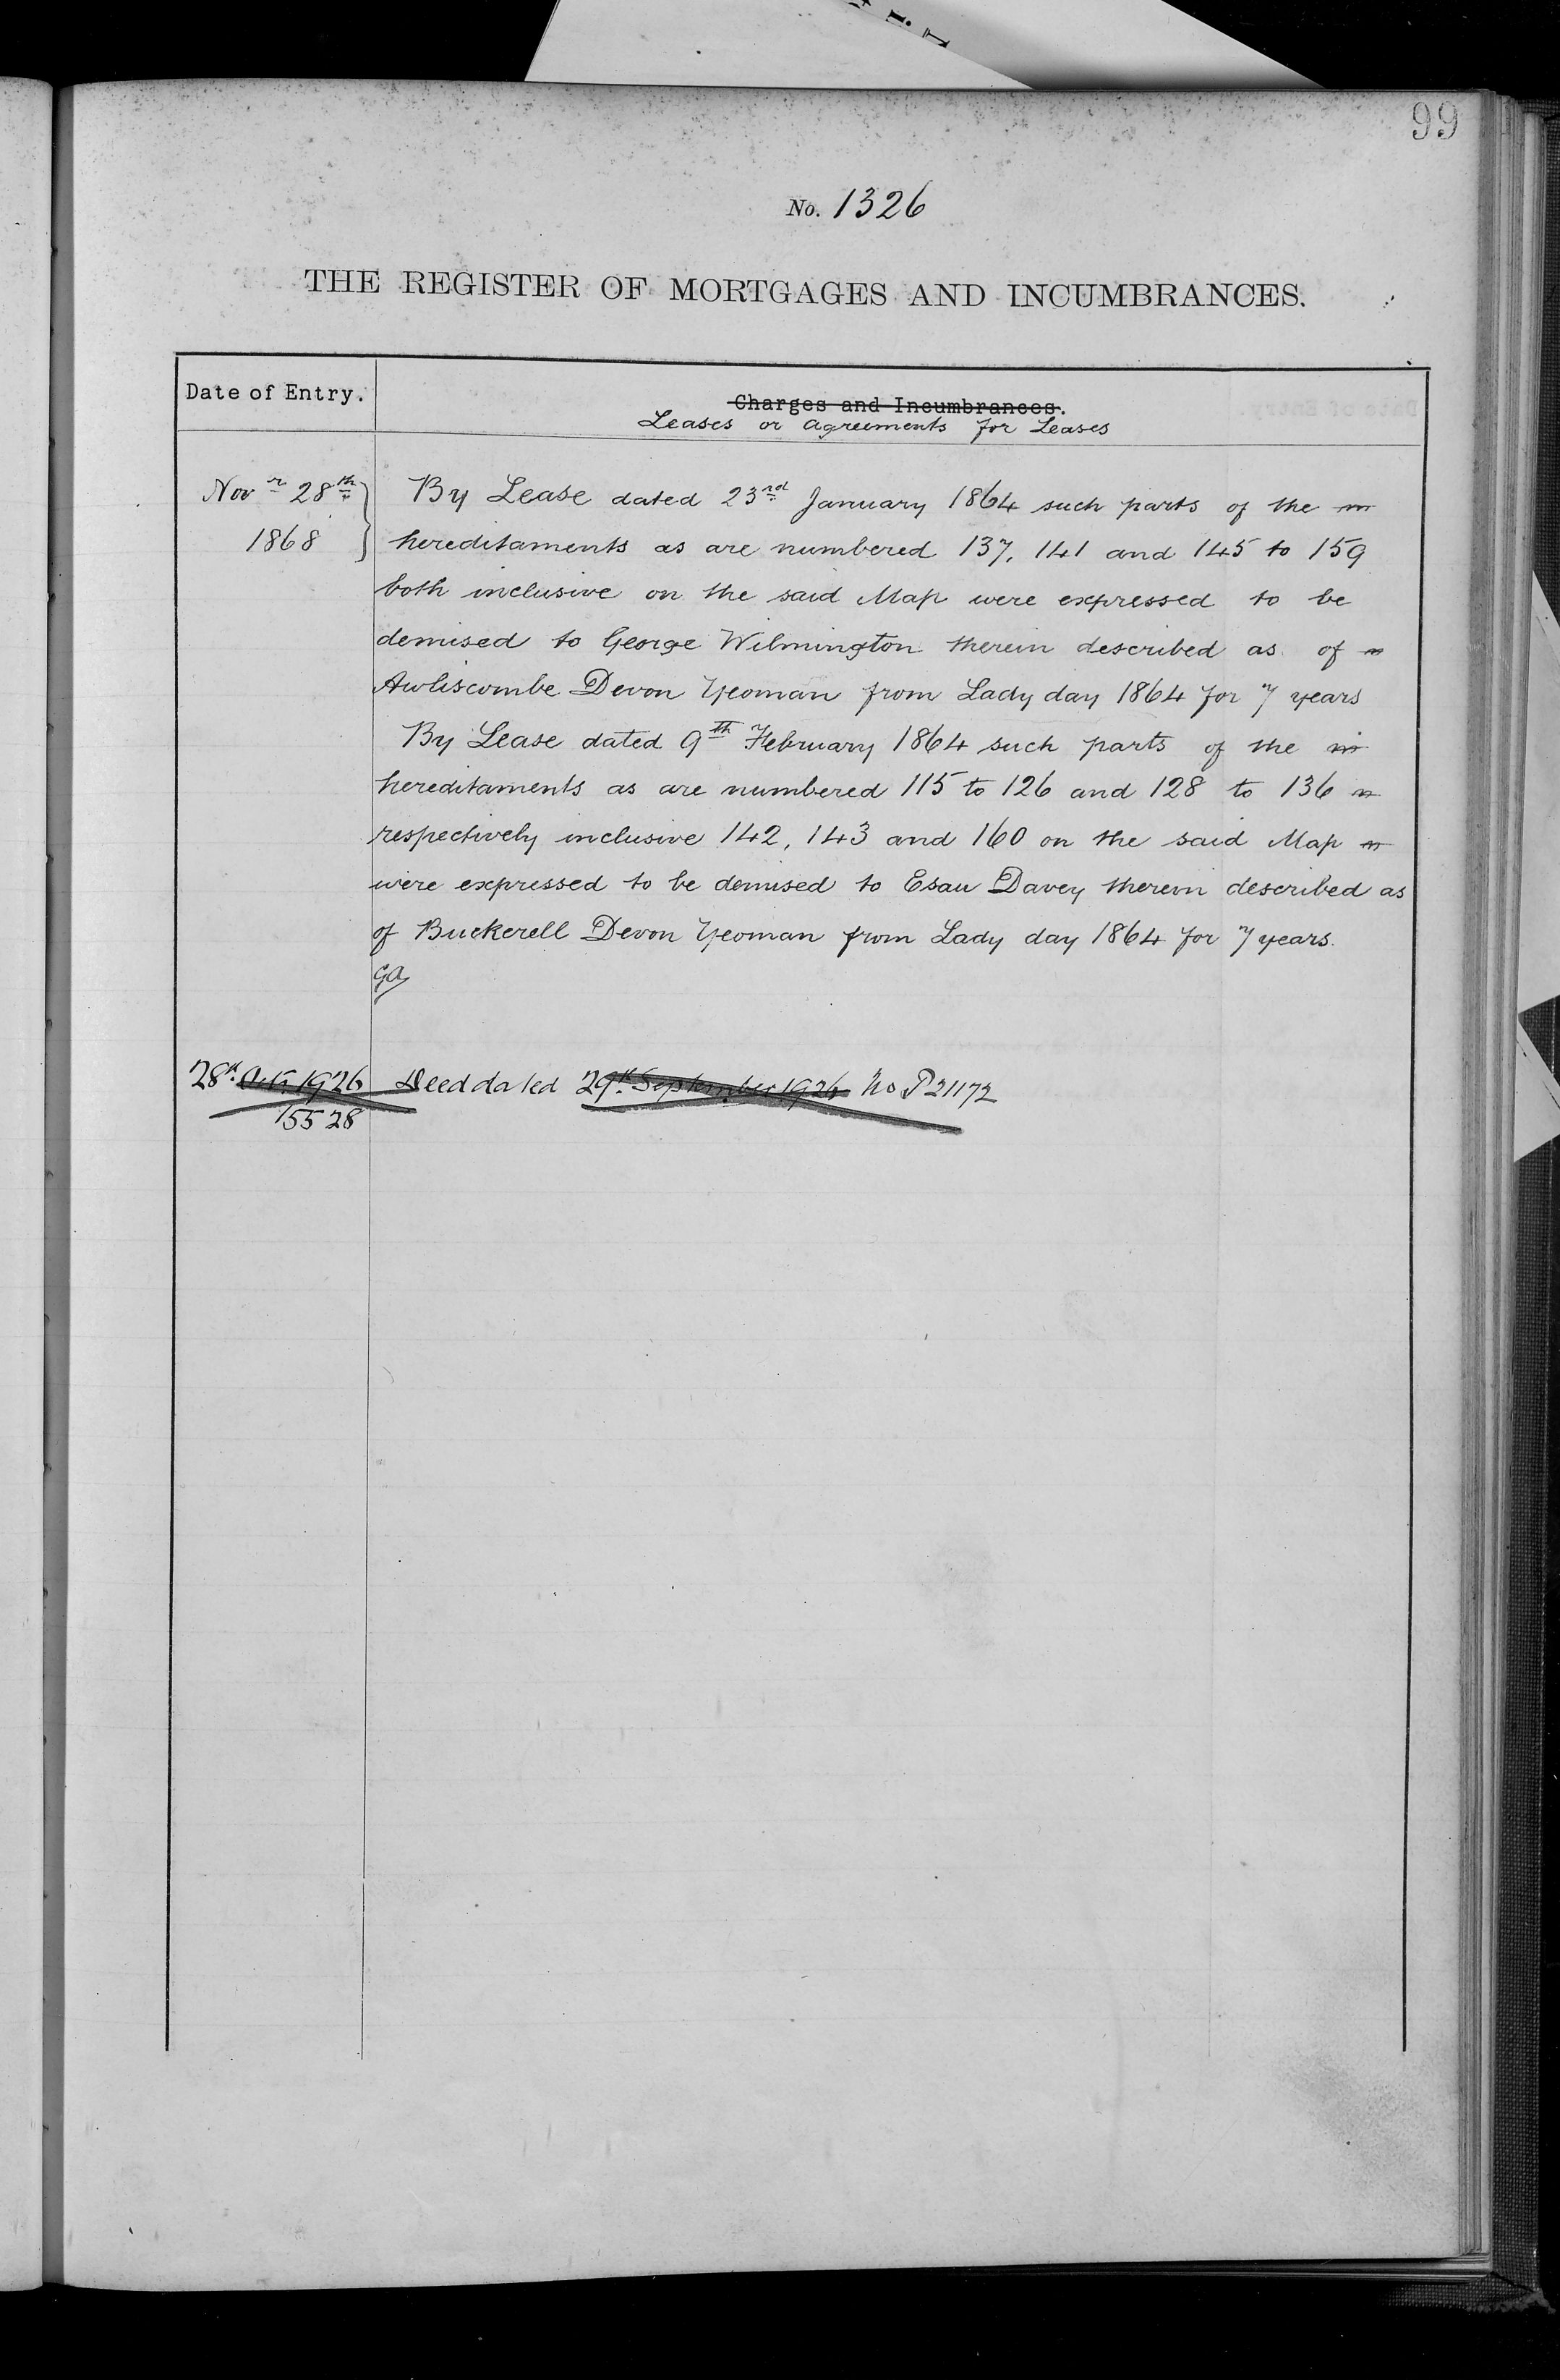 99
No. 1326
THE REGISTER OF MORTGAGES AND INCUMBRANCES.
Date of Entry.
Charges and Incumbrances.
Leases or Agreements for Leases
Novr 28th
1868
By Lease dated 23rd January 1864 such parts of the
hereditaments as are numbered 137, 141 and 145 to 159
both inclusive on the said Map were expressed to be
demised to George Wilmington therein described as of
Awliscombe Devon Yeoman from Lady day 1864 for 7 years
By Lease dated 9th February 1864 such parts of the
hereditaments as are numbered 115 to 126 and 128 to 136
respectively inclusive 142, 143 and 160 on the said Map
were expressed to be demised to Esau Davey therein described as
of Buckerell Devon Yeoman from Lady day 1864 for 7 years.
GA
28th Oct. 1926 Deed dated 29th September 1926 No P21172
15528